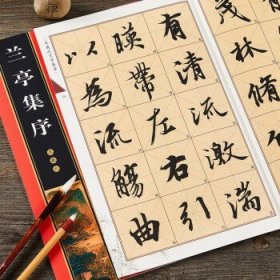 茂林脩
有清流激湍
暎帶左右引
以為流觴曲
兰亭集序